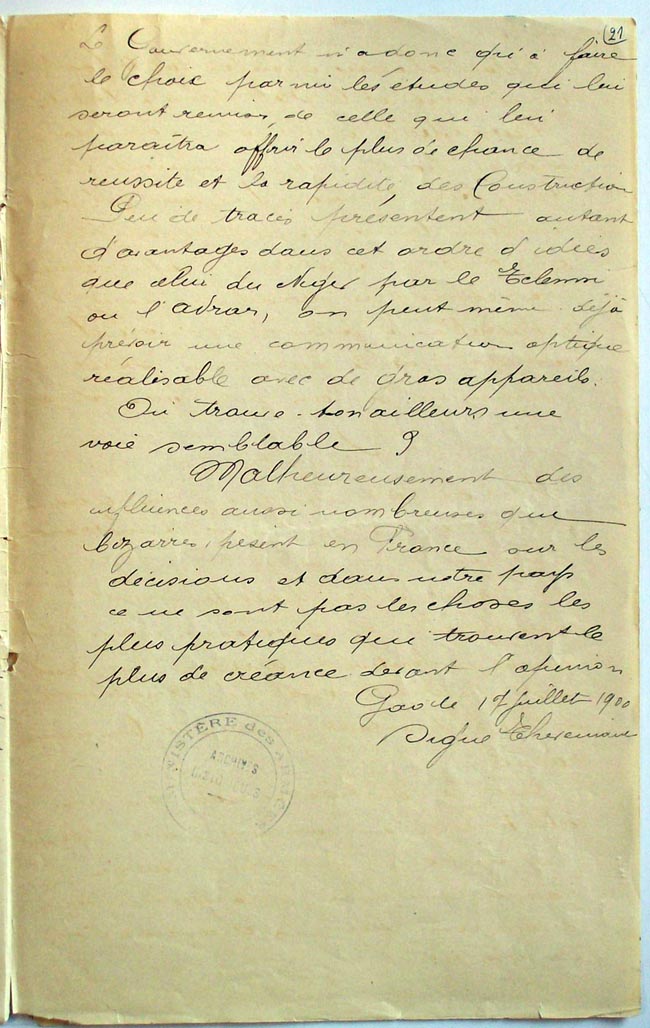 21
Le Gouvernement n'a donc qu'à faire
le choix parmi les études qui lui
seront remises, de celle qui lui
paraîtra offrir le plus de chance de
réussite et la rapidité, des Construction
Peu de tracés présentent autant
d'avantages dans cet ordre d'idées
que celui du Niger par le
ou l'Adrar, on peut même déjà
prévoir une communication optique
réalisable avec de gros appareils.
Où trouve-t-on ailleurs une
voie semblable ?
Malheureusement des
influences aussi nombreuses que
bizarres, pèsent en France sur les
décisions et dans notre pays
ce ne sont pas les choses les
plus pratiques qui trouvent le
plus de créance devant l'opinion
Gao le 17 Juillet 1900
Signé
MINISTÈRE des ARMÉES
ARCHIVES
HISTORIQUES